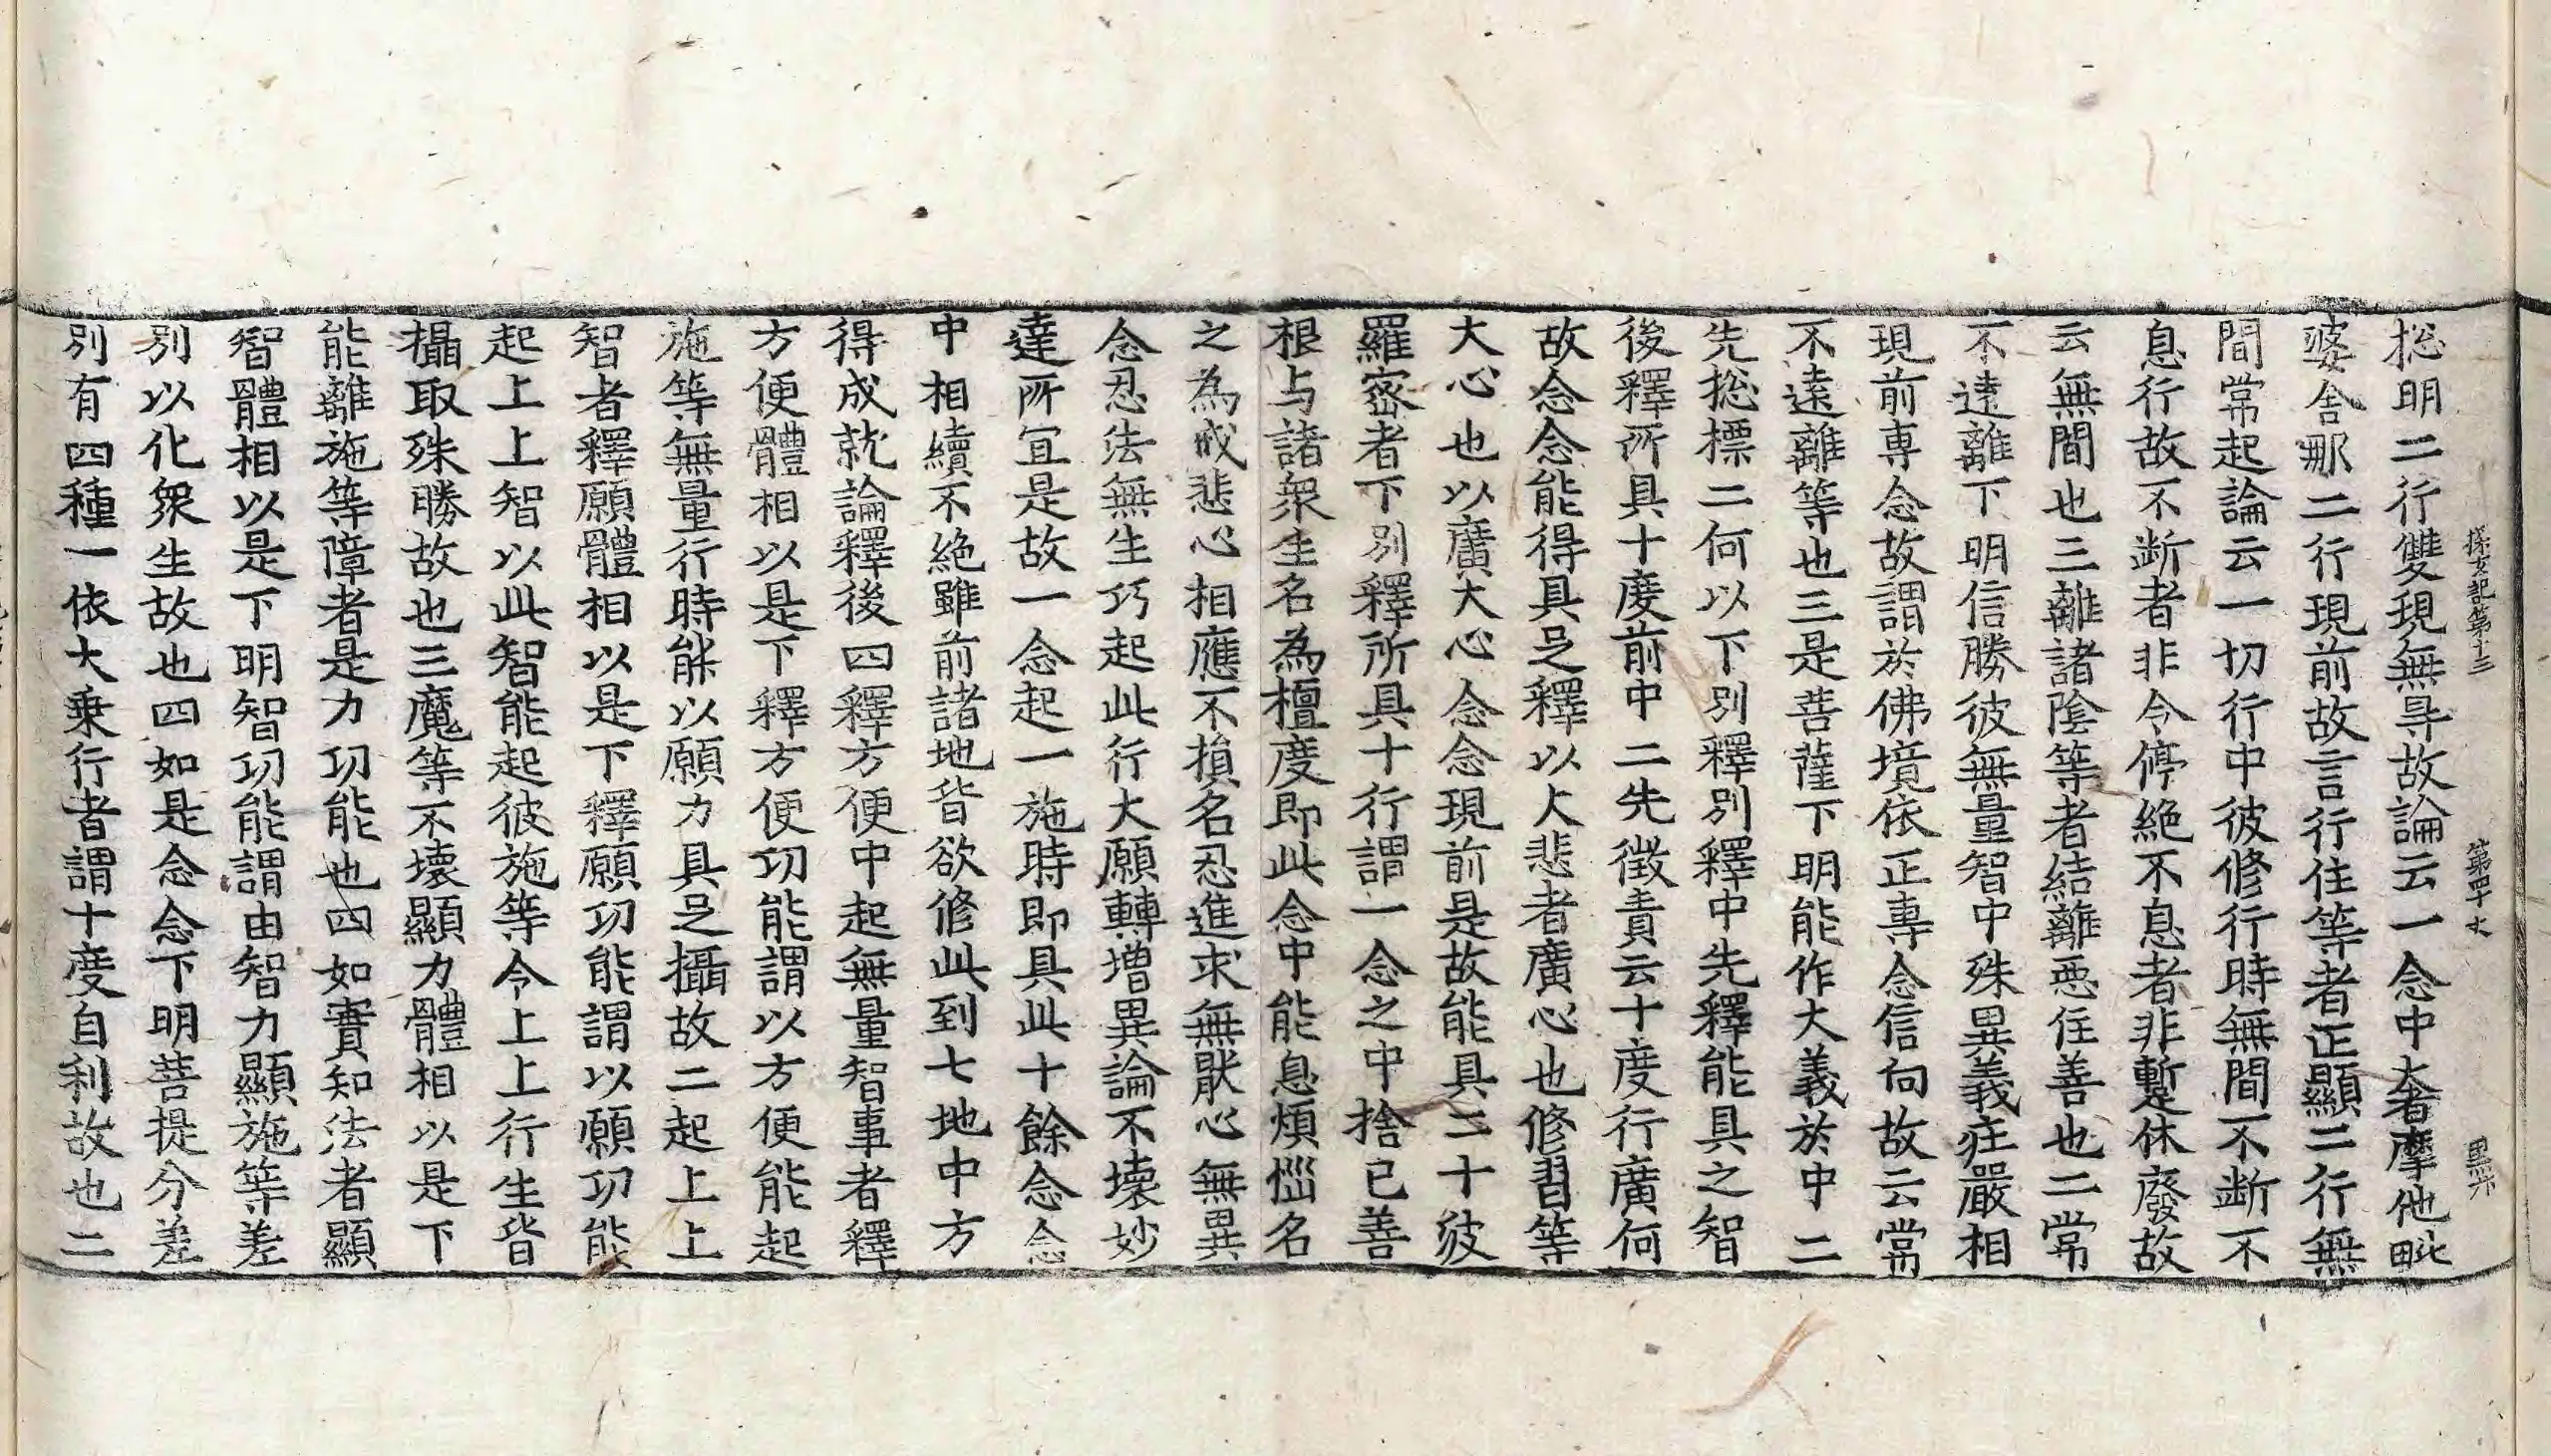 探玄記第十三 第四十丈 黑六
捴明二行雙現無㝵故論云一念中奢摩他毗
婆舍那二行現前故言行住等者正顯二行無
間常起論云一切行中彼修行時無間不断不
息行故不断者非令停絶不息者非暫休廢故
云無間也三離諸陰等者結離惡住善也二常
不遠離下明信勝彼無量智中殊異義莊嚴相
現前専念故謂於佛境依正專念信向故云常
不遠離等也三是菩薩下明能作大義於中二
先捴標二何以下別釋別釋中先釋能具之智
後釋所具十度前中二先徵責云十度行廣何
故念念能得具足釋以大悲者廣心也修習等
大心也以廣大心念念現前是故能具二十彼
羅蜜者下別釋所具十行謂一念之中捨已善
根与諸衆生名為檀度即此念中能息煩惱名
之為戒悲心相應不損名忍進求無猒心無異
念忍法無生巧起此行大願轉增異論不壞妙
達所宜是故一念起一施時即具此十餘念念
中相續不絶雖前諸地皆欲修此到七地中方
得成就論釋後四釋方便中起無量智事者釋
方便體相以是下釋方便功能謂以方便能起
施等無量行時能以願力具足攝故二起上上
智者釋願體相以是下釋願功能謂以願功能
起上上智以此智能起彼施等令上上行生皆
攝取殊勝故也三魔等不壞顯力體相以是下
能離施等障者是力功能也四如實知法者顯
智體相以是下明智功能謂由智力顯施等差
別以化衆生故也四如是念念下明菩提分差
別有四種一依大乗行者謂十度自利故也二